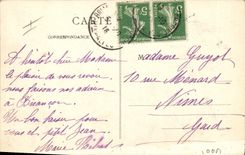 CARTE
CORRESPONDANCE
A bientôt chère Madame
le plaisir de vous revoir
nous faisons nos adieux
à Besançon
Un bon baiser pour
vous et petit Jean
Marie
Madame Guyot
10 rue Ménard
Nîmes
Gard